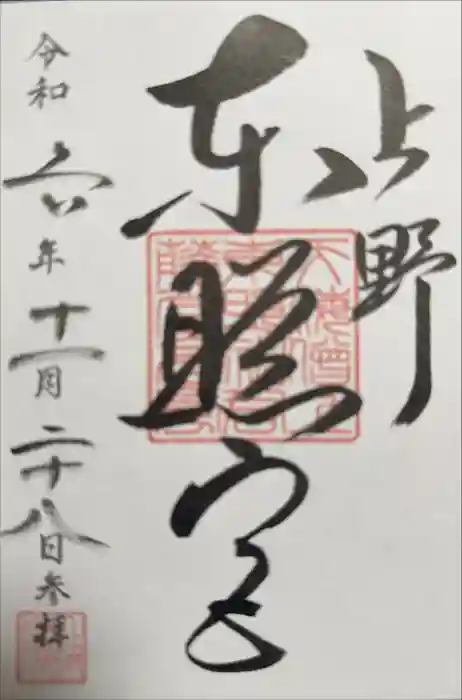 上野
東照宮
令和六年十一月二十八日参拝